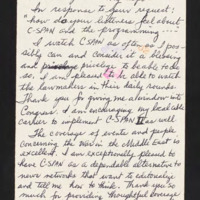 In response to your request:
"how do your listeners feel about
C-SPAN and the programming ---"
I watch C-SPAN as often as I pos-
sibly can and consider it a blessing
and privilege to be able to do
so. I am pleased to be able to watch
the lawmakers in their daily rounds.
Thank you for giving me a window into
Congress. I am encouraging my local cable
carrier to implement C-SPAN II as well.
The coverage of events and people
concerning the war in the Middle East is
excellent. I am exceptionally pleased to
have C-SPAN as a dependable alternative to
news networks that want to editorialize
and tell me how to think. Thank you so
much for providing thoughtful coverage